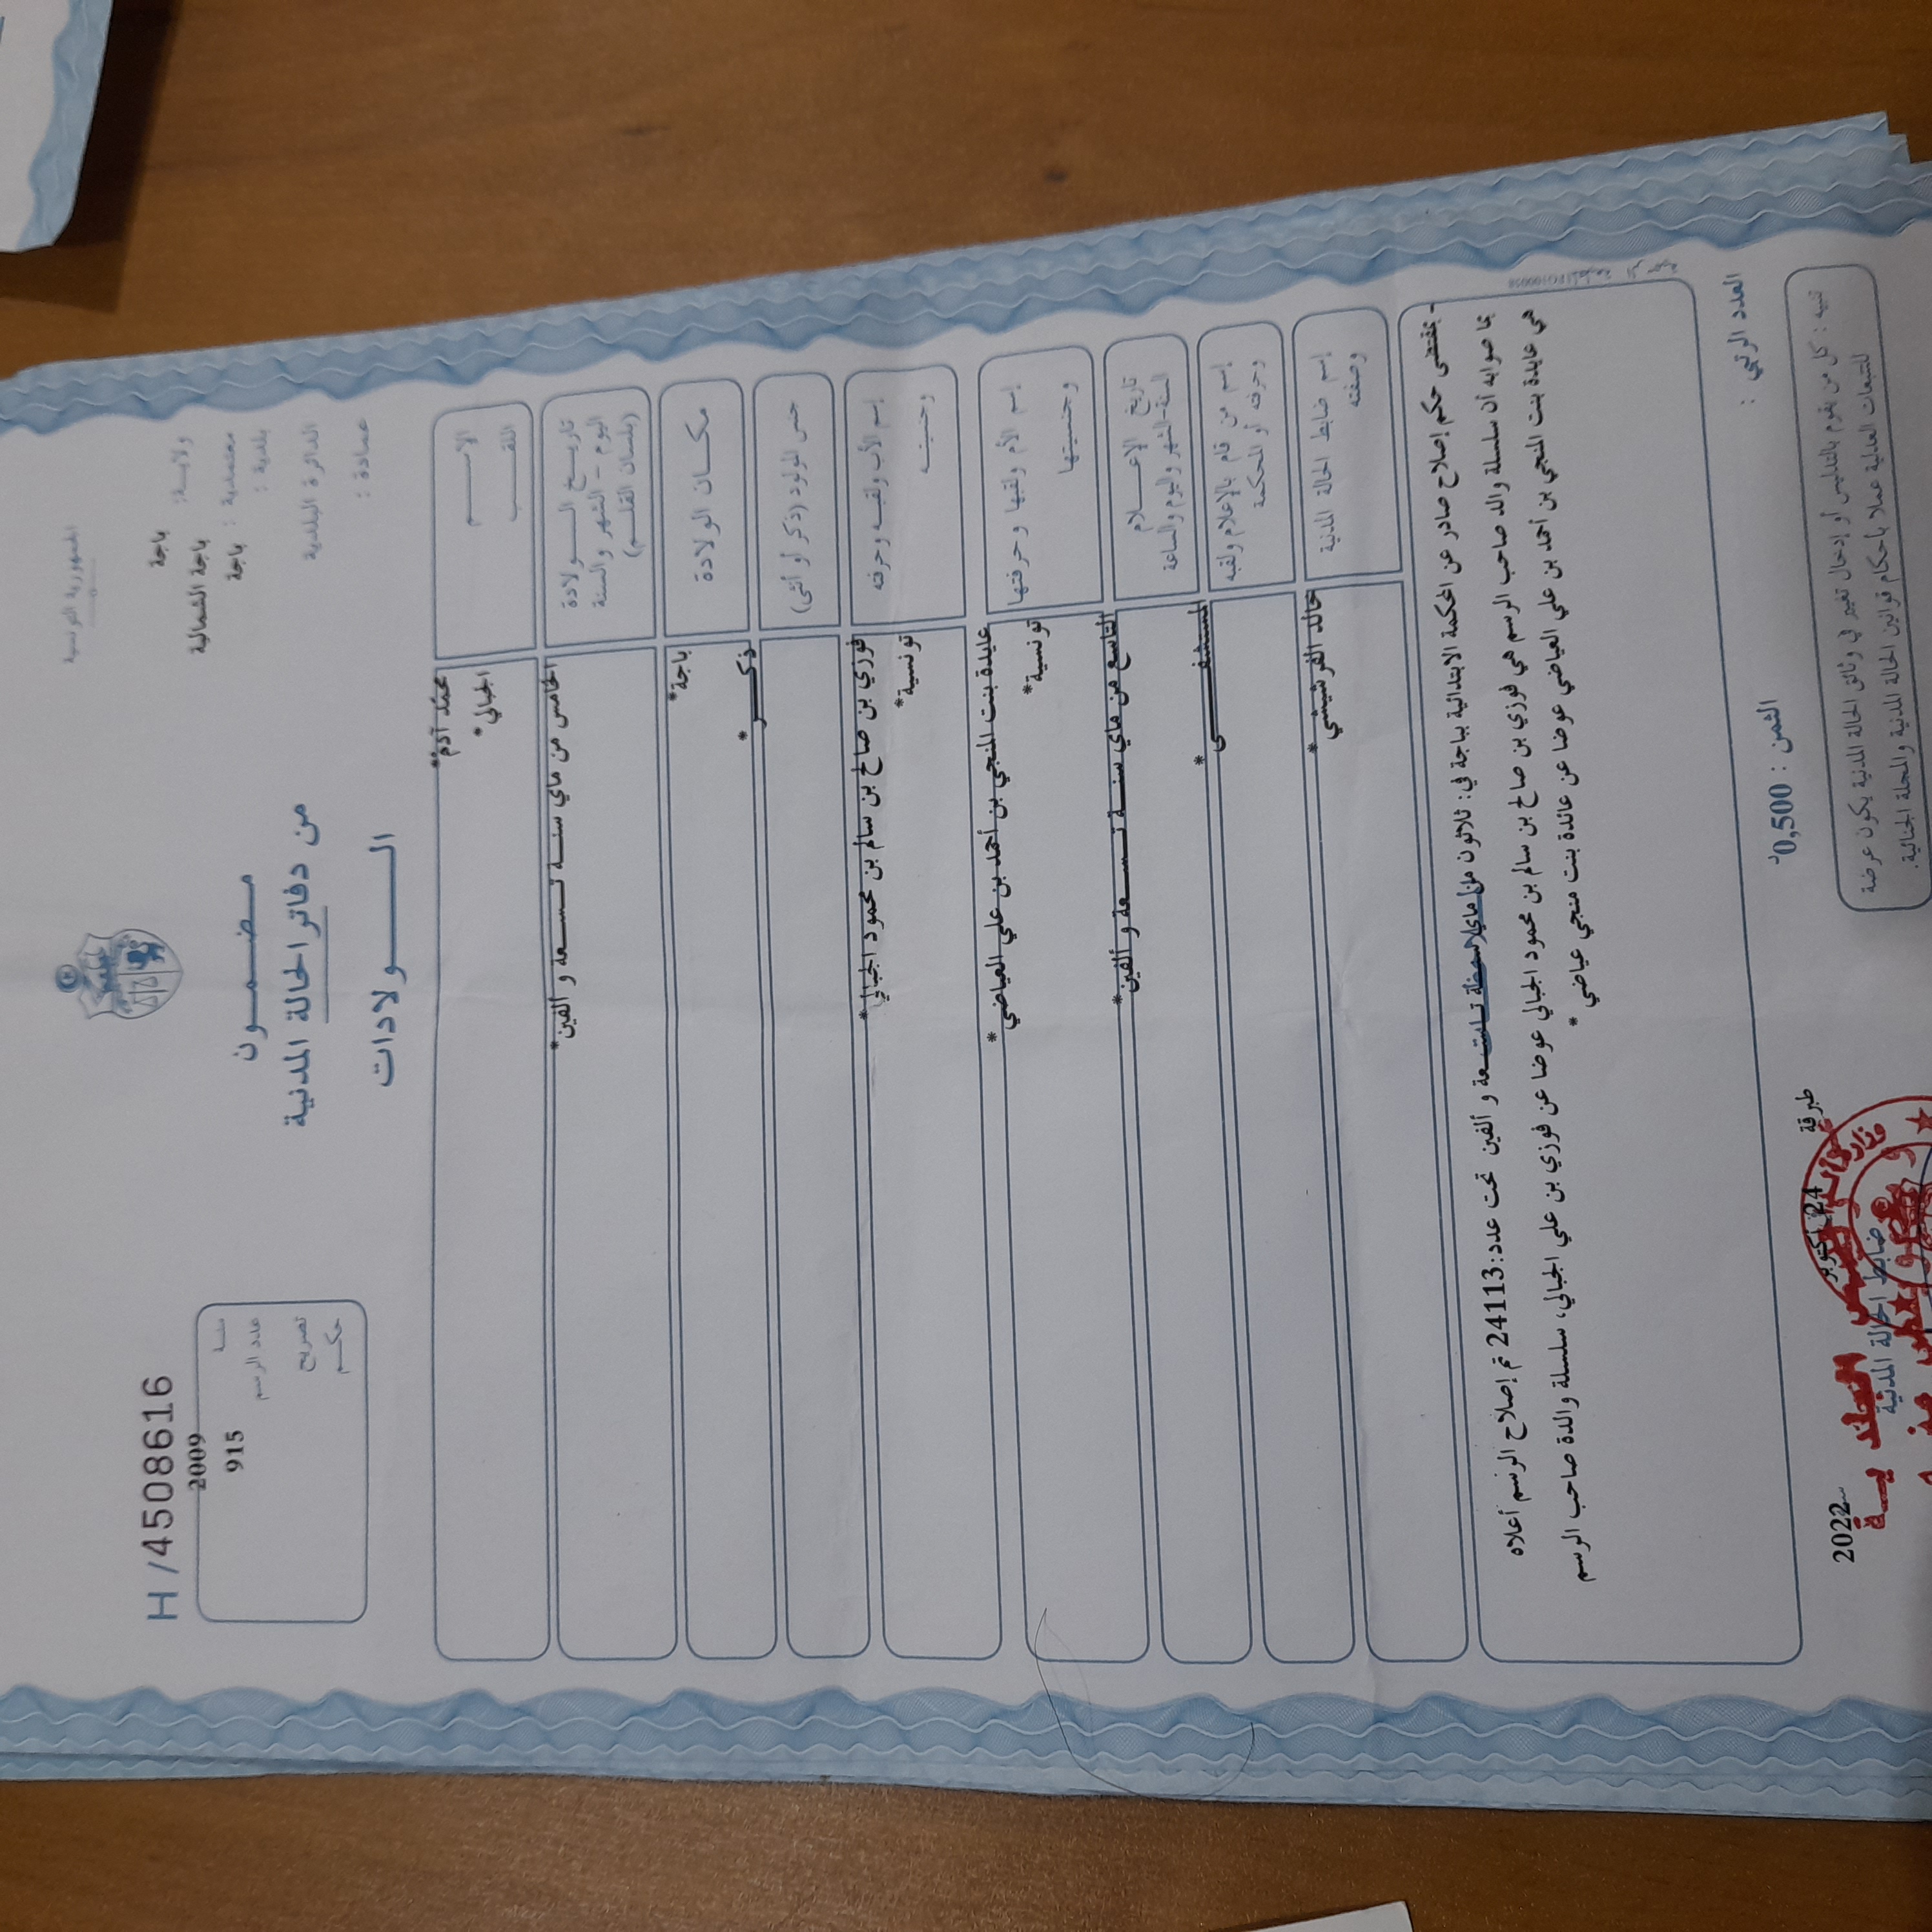 الجمهورية التونسية
ولاية: باجة
معتمدية : باجة الشمالية
بلدية : باجة
الدائرة البلدية
عمادة :
مضمون
من دفاتر الحالة المدنية
الولادات
H /4508616
سنة 2009
عدد الرسم 915
تصريح
حكم
الاسم محمد آدم*
اللقب الجبالي*
تاريخ الولادة
اليوم - الشهر والسنة
(بلسان القلم)
الخامس من ماي سنة تسعة و ألفين*
مكان الولادة
باجة*
جنس المولود (ذكر أو أنثى)
ذكر*
إسم الأب ولقبه وحرفته
وجنسيته
فوزي بن صالح بن سالم بن محمود الجبالي*
تونسية*
إسم الأم ولقبها وحرفتها
وجنسيتها
عايدة بنت المنجي بن أحمد بن علي العياضي*
تونسية*
تاريخ الإعلام
السنة-الشهر واليوم والساعة
التاسع من ماي سنة تسعة و ألفين*
إسم من قام بالإعلام ولقبه
وحرفته أو المحكمة
المستشفى*
إسم ضابط الحالة المدنية
وصفته
خالد القرشيشي*
- بمقتضى حكم إصلاح صادر عن المحكمة الابتدائية بباجة في: ثلاثون من ماي سنة تسعة و ألفين تحت عدد:24113 تم إصلاح الرسم أعلاه
بما صوابه أن سلسلة والد صاحب الرسم هي فوزي بن صالح بن سالم بن محمود الجبالي عوضا عن فوزي بن علي الجبالي، سلسلة والدة صاحب الرسم
هي عايدة بنت المنجي بن أحمد بن علي العياضي عوضا عن عائدة بنت منجي عياضي*
العدد الرتبي :
الثمن : 0,500د
طبرقة
24 أكتوبر 2022
ضابط الحالة المدنية
تنبيه : كل من يقوم بالتدليس أو إدخال تغيير في وثائق الحالة المدنية يكون عرضة
للتتبعات العدلية عملا بأحكام قوانين الحالة المدنية والمجلة الجنائية.